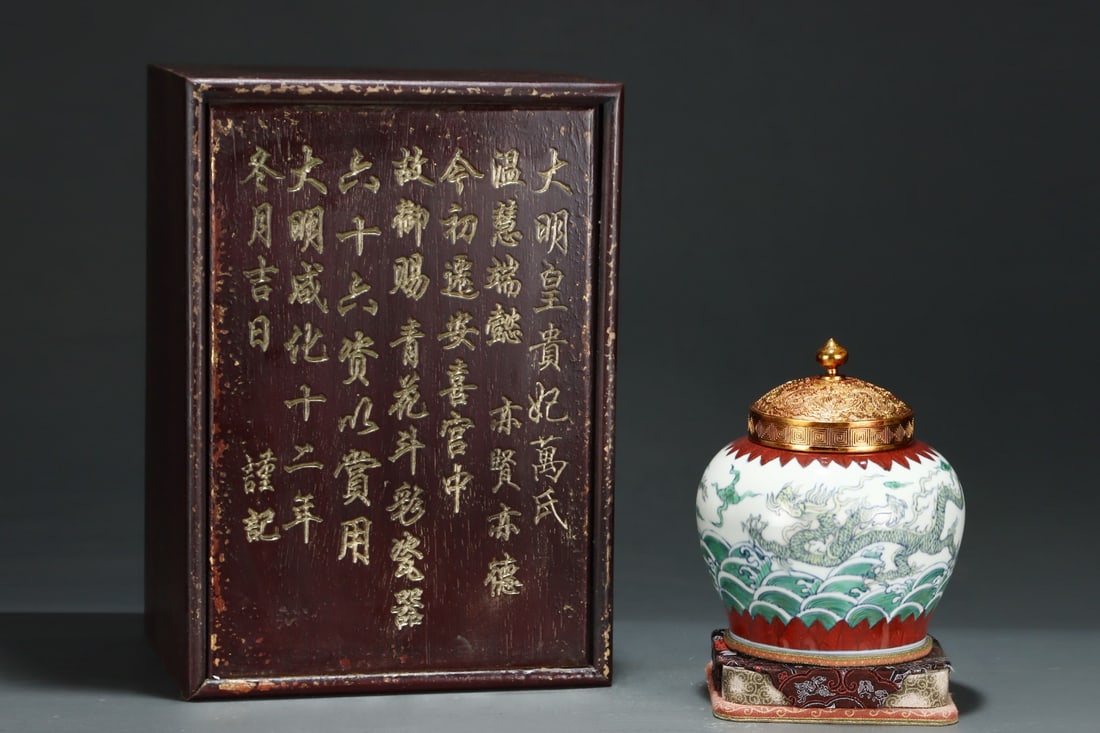 大明皇貴妃萬氏
温慧端懿 亦賢亦德
今初遷安喜宫中
故御赐青花斗彩瓷器
六十六资以赏用
大明成化十二年
冬月吉日 謹記